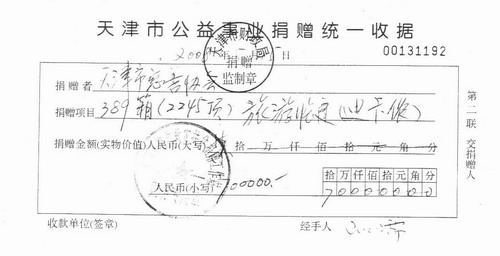 天津市公益事业捐赠统一收据
天津市财政局
捐赠
监制章
200 日
00131192
捐赠者 天津市慈善协会
捐赠项目 389箱(2245顶)旅游帐篷(迪卡侬)
捐赠金额(实物价值)人民币(大写) 拾万仟佰拾元角分
人民币(小写) 00000.-
拾万仟佰拾元角分
70000000
收款单位(签章) 经手人
第二联 交捐赠人